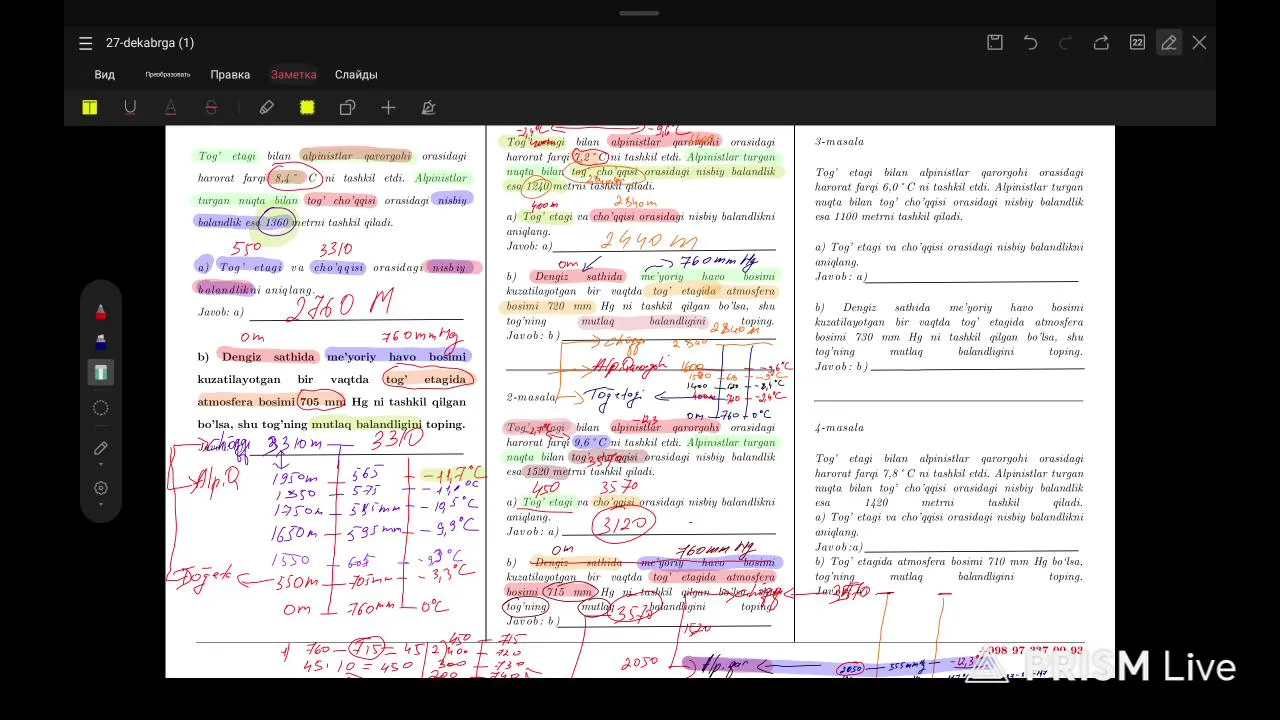 27-dekabrga (1)
22
Вид
Преобразовать
Правка
Заметка
Слайды
Tog' etagi bilan alpinistlar qarorgohi orasidagi
harorat farqi 8,4° C ni tashkil etdi. Alpinistlar
turgan nuqta bilan tog' cho'qqisi orasidagi nisbiy
balandlik esa 1360 metrni tashkil qiladi.
550 3310
a) Tog' etagi va cho'qqisi orasidagi nisbiy
balandlikni aniqlang.
Javob: a)
2760 M
0m 760mmHg
b) Dengiz sathida me'yoriy havo bosimi
kuzatilayotgan bir vaqtda tog' etagida
atmosfera bosimi 705 mm Hg ni tashkil qilgan
bo'lsa, shu tog'ning mutlaq balandligini toping.
3310m 3310
Alp.Q
1950m 565 -11,7°C
1750m 585mm -10,5°C
1650m 595mm -9,9°C
1550 605
550m 705mm -3,3°C
0m 760mm 0°C
760-715=45
45·10=450
450 715
400 720
300 730
200 740
-9,6°C
Tog' etagi bilan alpinistlar qarorgohi orasidagi
harorat farqi 7,2°C ni tashkil etdi. Alpinistlar turgan
nuqta bilan tog' cho'qqisi orasidagi nisbiy balandlik
esa 1240 metrni tashkil qiladi.
400m 2840m
a) Tog' etagi va cho'qqisi orasidagi nisbiy balandlikni
aniqlang.
Javob: a)
2440 m
0m 760mmHg
b) Dengiz sathida me'yoriy havo bosimi
kuzatilayotgan bir vaqtda tog' etagida atmosfera
bosimi 720 mm Hg ni tashkil qilgan bo'lsa, shu
tog'ning mutlaq balandligini toping.
Javob: b)
2840m
2840
1600 -9,6°C
1400 -8,4°C
400m -2,4°C
0m 760 0°C
2-masala
Tog' etagi bilan alpinistlar qarorgohi orasidagi
harorat farqi 9,6°C ni tashkil etdi. Alpinistlar turgan
nuqta bilan tog' cho'qqisi orasidagi nisbiy balandlik
esa 1520 metrni tashkil qiladi.
450 3570
a) Tog' etagi va cho'qqisi orasidagi nisbiy balandlikni
aniqlang.
Javob: a)
3120
0m 760mmHg
b) Dengiz sathida me'yoriy havo bosimi
kuzatilayotgan bir vaqtda tog' etagida atmosfera
bosimi 715 mm Hg ni tashkil qilgan bo'lsa, shu
tog'ning mutlaq balandligini toping.
Javob: b)
3570
1520
2050 Alp.qar 2050 555mmHg -12,3°C
3-masala
Tog' etagi bilan alpinistlar qarorgohi orasidagi
harorat farqi 6,0°C ni tashkil etdi. Alpinistlar turgan
nuqta bilan tog' cho'qqisi orasidagi nisbiy balandlik
esa 1100 metrni tashkil qiladi.
a) Tog' etagi va cho'qqisi orasidagi nisbiy balandlikni
aniqlang.
Javob: a)
b) Dengiz sathida me'yoriy havo bosimi
kuzatilayotgan bir vaqtda tog' etagida atmosfera
bosimi 730 mm Hg ni tashkil qilgan bo'lsa, shu
tog'ning mutlaq balandligini toping.
Javob: b)
4-masala
Tog' etagi bilan alpinistlar qarorgohi orasidagi
harorat farqi 7,8°C ni tashkil etdi. Alpinistlar turgan
nuqta bilan tog' cho'qqisi orasidagi nisbiy balandlik
esa 1420 metrni tashkil qiladi.
a) Tog' etagi va cho'qqisi orasidagi nisbiy balandlikni
aniqlang.
Javob:a)
b) Tog' etagida atmosfera bosimi 710 mm Hg bo'lsa,
tog'ning mutlaq balandligini toping.
3570
+998 97 337 00 93
PRISM Live